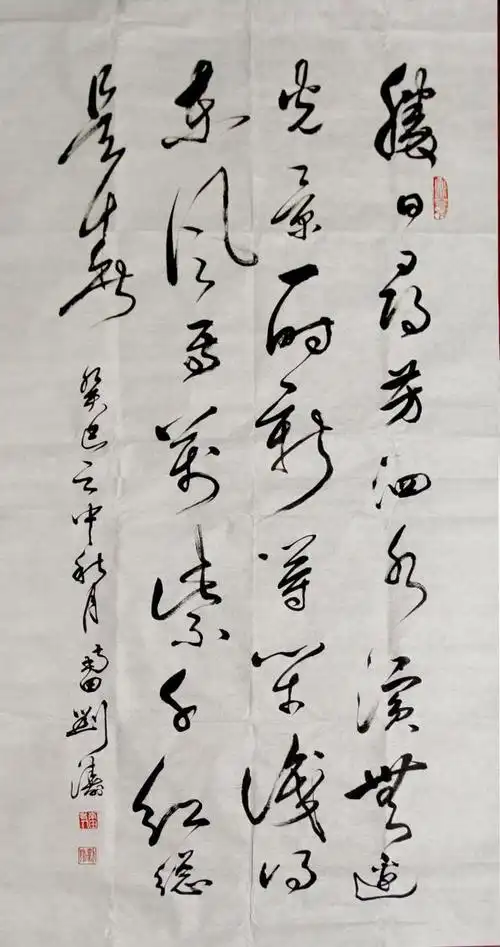 勝日尋芳泗水濱無邊
光景一時新等閒識得
東風面萬紫千紅總
是春
癸巳之中秋月劉濤